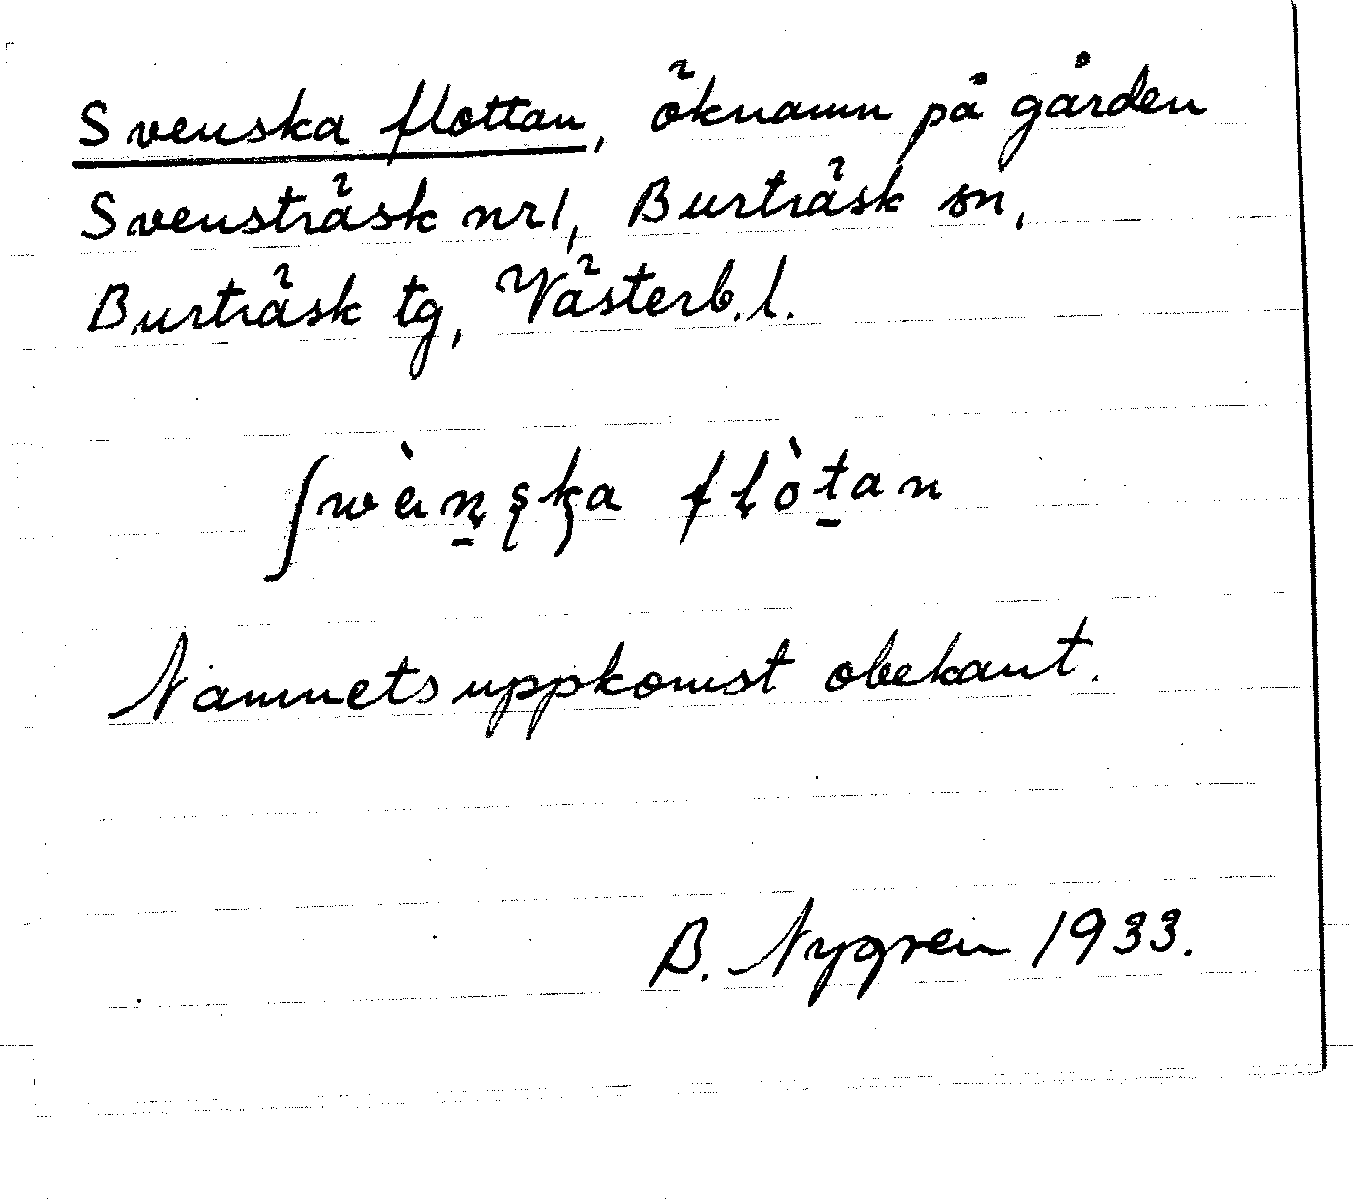 Svenska flottan, öknamn på gården
Svensträsk nr 1, Burträsk sn,
Burträsk tg, Västerb. l.
flòtan
Namnets uppkomst obekant.
B. Nygren 1933.